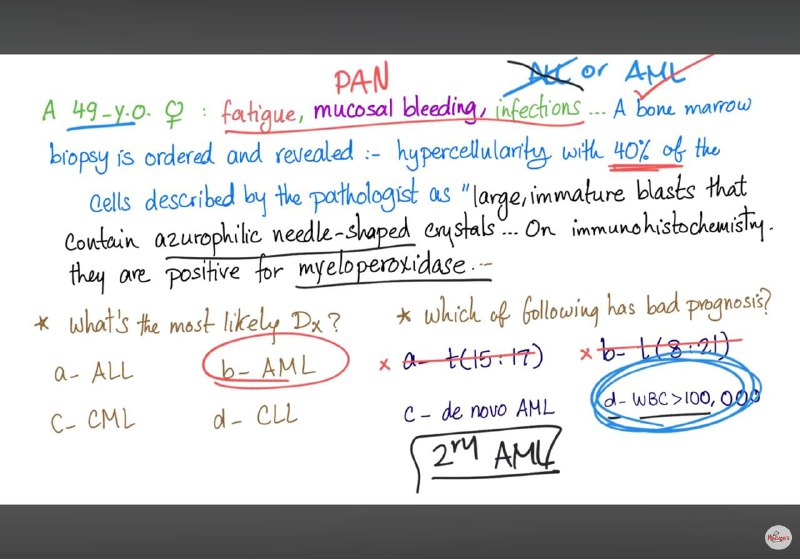 PAN
ALL or AML
A 49-y.o. ♀ : fatigue, mucosal bleeding, infections ... A bone marrow
biopsy is ordered and revealed :- hypercellularity with 40% of the
cells described by the pathologist as "large, immature blasts that
contain azurophilic needle-shaped crystals ... On immunohistochemistry.
they are positive for myeloperoxidase. --
* What's the most likely Dx?
a- ALL
b- AML
C- CML
d- CLL
* Which of following has bad prognosis?
x a- t(15:17)
x b- t(8:21)
C- de novo AML
d- WBC>100,000
2ry AML